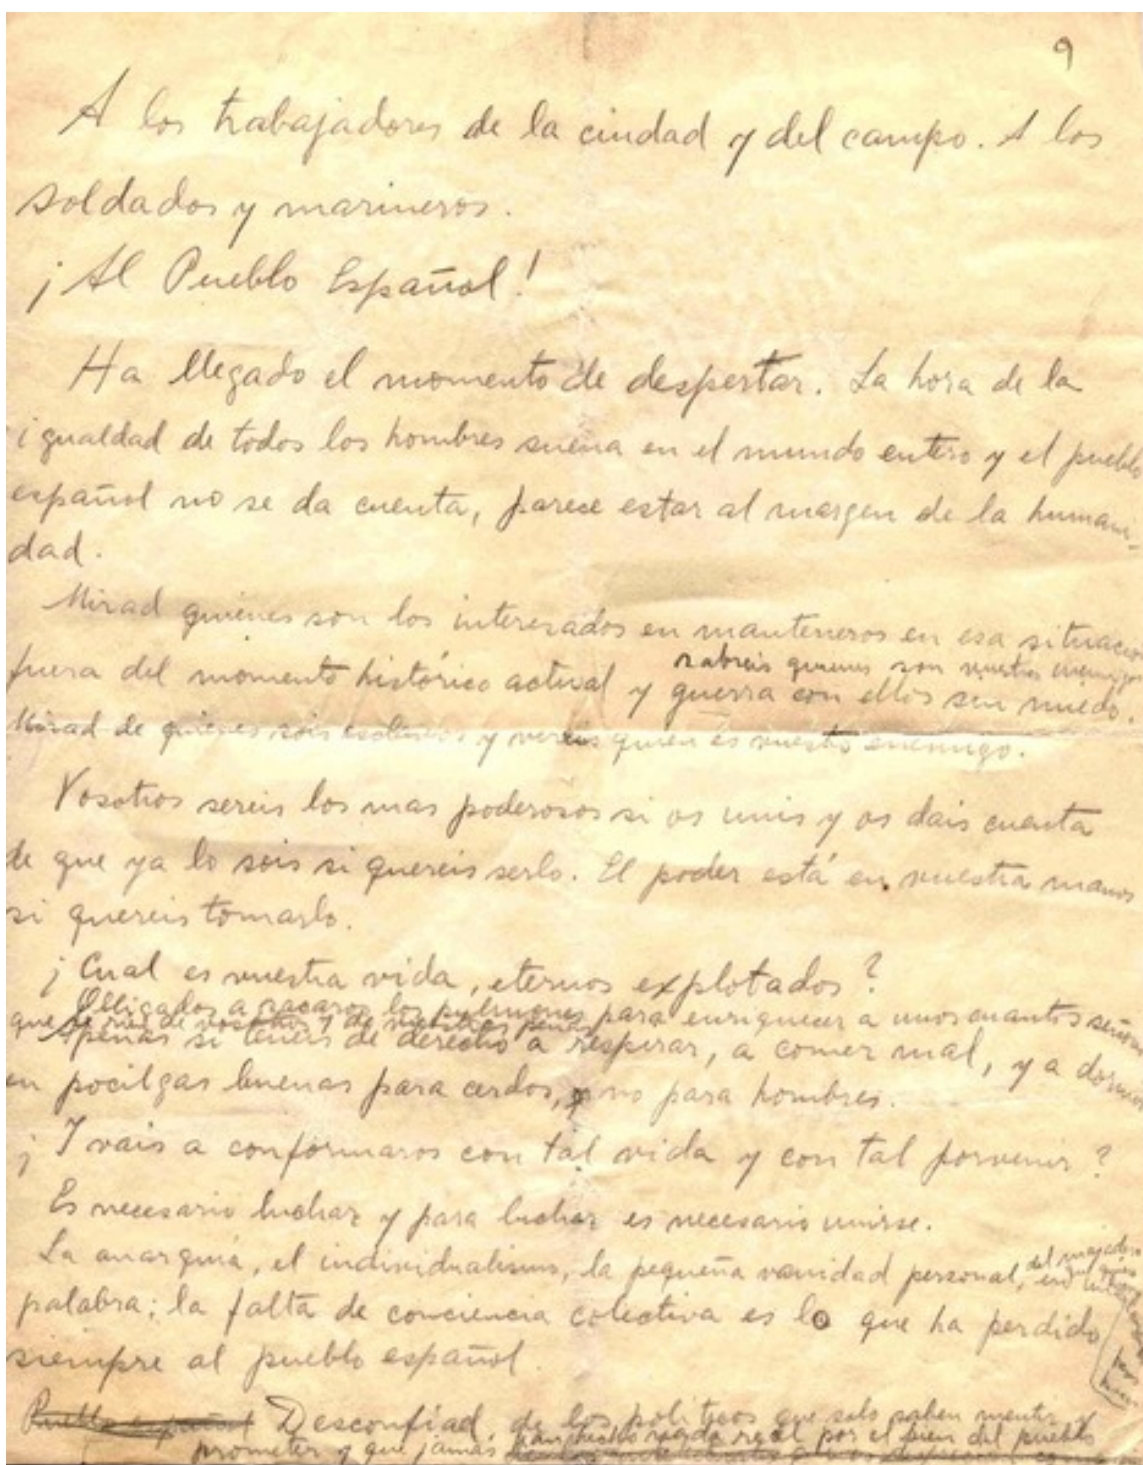 9
A los trabajadores de la ciudad y del campo. A los
soldados y marineros.
¡Al Pueblo Español!
Ha llegado el momento de despertar. La hora de la
igualdad de todos los hombres suena en el mundo entero y el pueblo
español no se da cuenta, parece estar al margen de la humani-
dad.
Mirad quienes son los interesados en manteneros en esa situacion
fuera del momento histórico actual y
sabreis quienes son vuestros enemigos
guerra con ellos sin miedo.
Mirad de quienes sois esclavos y vereis quien es vuestro enemigo.
Vosotros sereis los mas poderosos si os unis y os dais cuenta
de que ya lo sois si quereis serlo. El poder está en vuestra manos
si quereis tomarlo.
¡Cual es vuestra vida, eternos explotados?
Obligados a sacaros los pulmones para enriquecer a unos cuantos señores
que se rien de vosotros y de vuestras penas
Apenas si teneis de derecho a respirar, a comer mal, y a dormir
en pocilgas buenas para cerdos, y no para hombres.
¡Y vais a conformaros con tal vida y con tal porvenir?
Es necesario luchar y para luchar es necesario unirse.
La anarquia, el individualismo, la pequeña vanidad personal, en
palabra; la falta de conciencia colectiva es lo que ha perdido
siempre al pueblo español.
Pueblo español Desconfiad de los politicos que solo saben mentir y
prometer y que jamas han hecho nada real por el bien del pueblo